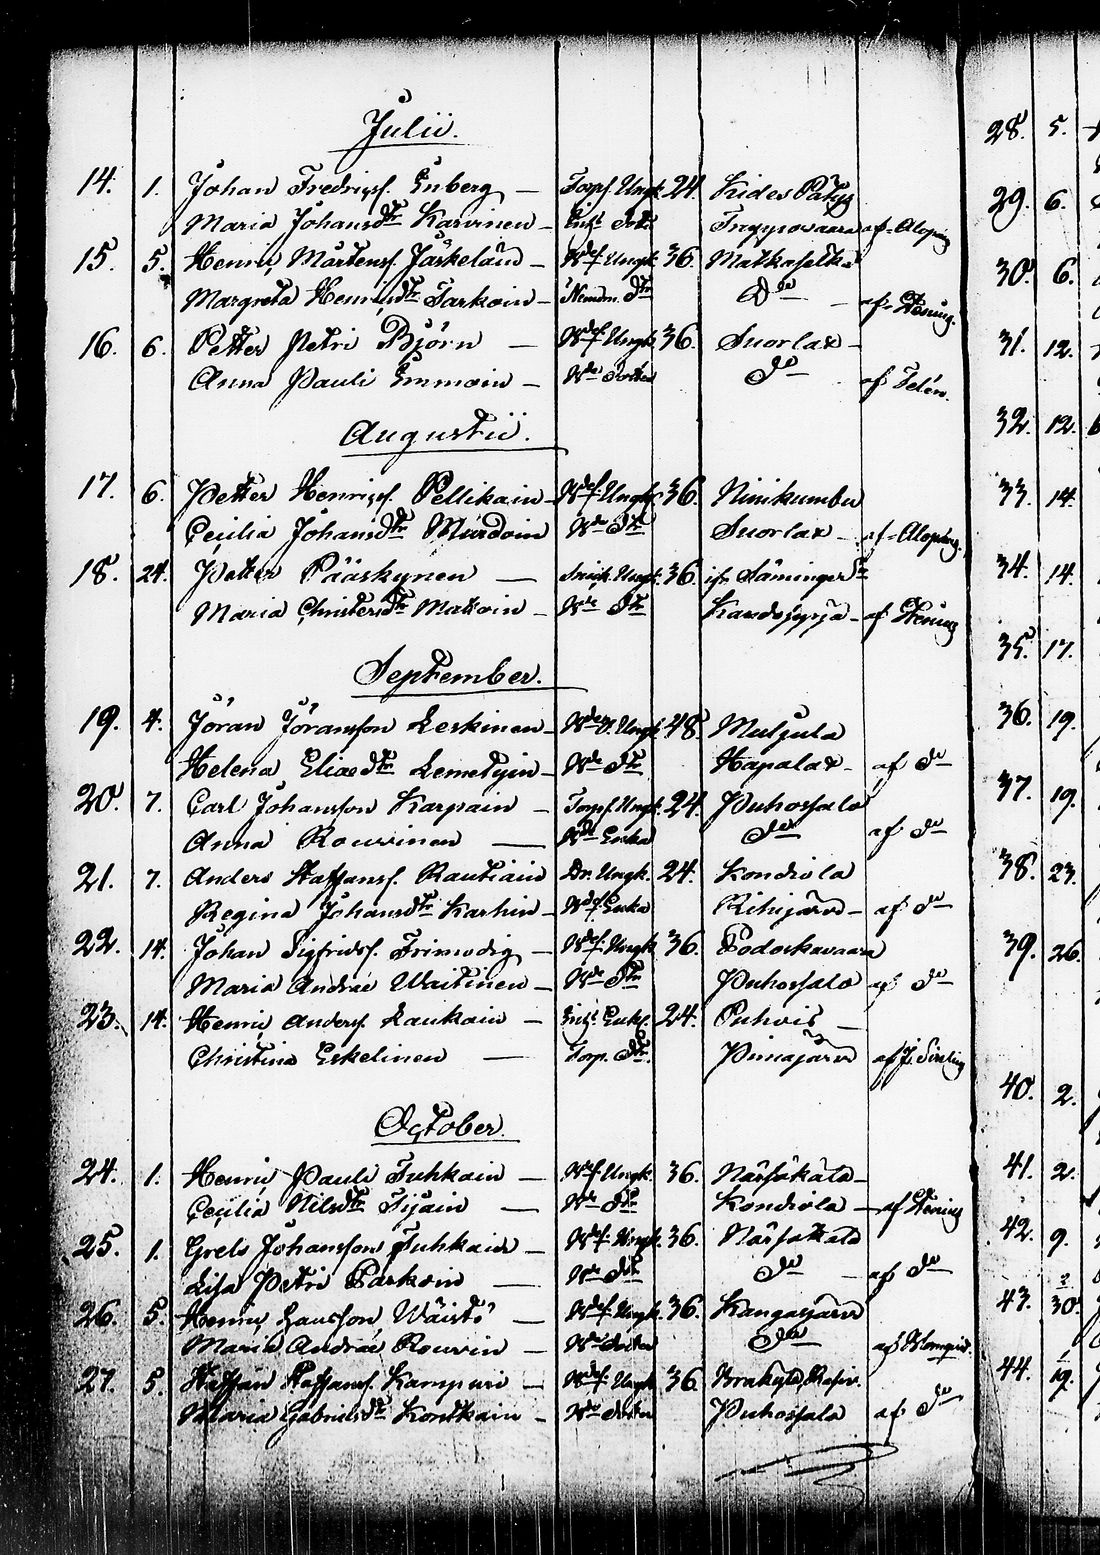 Julii.
14. 1. Johan Fredrichsf. Enberg — Torpf. Ungk. 24. Kides Potus
Maria Johansdtr Karvinen — af Aloping
15. 5. Henric Mårtensf. Jäskeläin — Bdef. Ungk. 36. Matkaselkä
Margreta Henricsdtr Tarkain — Nemdm. Dtr Do — af Hening.
16. 6. Petter Petri Björn — Bdef. Ungk. 36. Suorlax —
Anna Pauli Immoin — Bde Dotter Do af Telén.
Augustii.
17. 6. Petter Henricsf. Pellikain — Bdef. Ungk. 36. Niinikumbu
Cecilia Johansdtr Murdoin Bde Dtr Suorlax — af Aloping.
18. 24. Petter Pääskynen — Ungk. 36. ifr. Säminge
Maria Christersdtr Matoin — Bde Dtr — af Hening
September.
19. 4. Jöran Jöransson Leskinen — Ungk. 48. Muljula
Helena Eliasdtr Lemetyin — Bde Dtr Hapalax — af Do
20. 7. Carl Johansson Karpain — Torpf. Ungk. 24. Puhossalo
Anna Rouvinen — Bde Enka Do af Do
21. 7. Anders Staffansf. Rautiain Dr. Ungk. 24. Kondiola
Regina Johansdtr Karhin — Enka Rihijärvi — af Do
22. 14. Johan Sigfridsf. Frimodig — Bdef. Ungk. 36. Podoskavaara
Maria Andraé Waitinen — Bde Dtr Puhossalo af Do
23. 14. Henric Andersf. Laukain — Enkl. 24. Puhois —
Christina Eskelinen — Torp. Dtr. Piimäjärvi af J. Sirelius
October.
24. 1. Henric Pauli Tuhkain — Bdef. Ungk. 36. Närsäkälä —
Cecilia Nilsdtr Tijain — Bde Dtr Kondiola — af Hening
25. 1. Grels Johansson Tuhkain — Bdef. Ungk. 36. Närsäkälä
Lisa Petri Parkoin — Bde Dtr Do — af Do
26. 5. Henric Hansson Wäistö — Bdef. Ungk. 36. Kangasjärvi
Maria Andraé Rouvin — Bde Dotter Do af Blomqvist.
27. 5. Staffan Staffansf. Kamppuri — Bdef. Ungk. 36.
Maria Gabrielsdtr Kontkain — Bde Dotter Puhossalo af Do
28. 5.
29. 6.
30. 6.
31. 12.
32. 12.
33. 14.
34. 14.
35. 17.
36. 19.
37. 19.
38. 23.
39. 26.
40. 2.
41. 2.
42. 9.
43. 30.
44. 19.